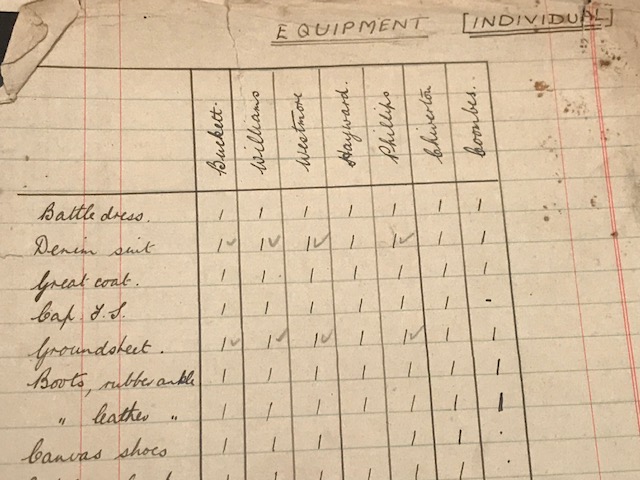 EQUIPMENT [INDIVIDUAL]
Buckett. Williams Westmore Hayward. Phillips Chiverton Coombes.
Battle dress. 1 1 1 1 1 1 1
Denim suit 1✓ 1✓ 1✓ 1 1✓ 1 1
Great coat. 1 1 1 1 1 1 1
Cap. F.S. 1 1 1 1 1 1 -
Groundsheet. 1✓ 1✓ 1✓ 1 1✓ 1 1
Boots, rubber ankle 1 1 1 1 1 1 1
" leather " 1 1 1 1 1 1 1
Canvas shoes 1 1 1 1 1 .